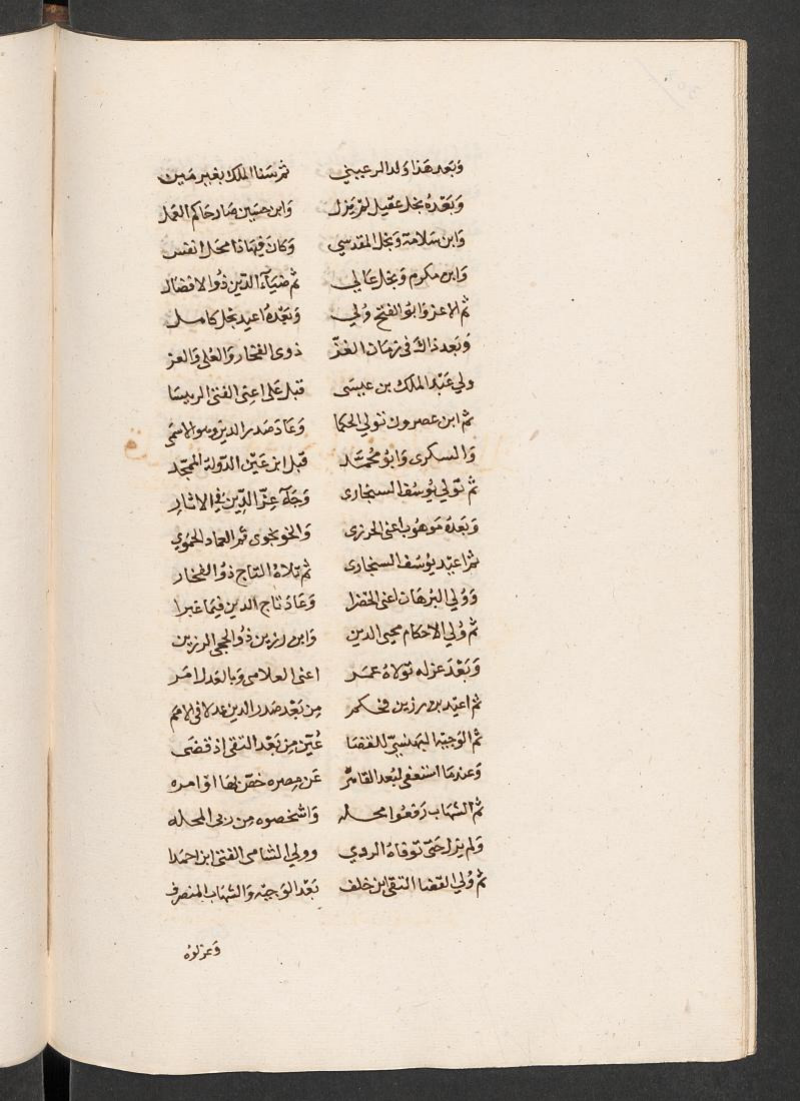 وبعد هذا ولد الرعيني ثم سنا الملك بغير مين
وبعده نجل عقيل لم يزل وابن حسين صار حاكم العمل
وابن سلامة ونجل المقدسي وكان فيها ذا محل انفس
وابن مكرم ونجل عالي ثم ضياء الدين ذو الافضال
ثم الاعز وابو الفتح ولي وبعده اعيد نجل كامل
وبعد ذاك في زمان الغز ذوى الفخار والعلى والعز
ولي عبد الملك بن عيسى قبل على اعنى الفتى الرييسا
ثم ابن عصرون تولي الحكما وعاد صدر الدين وهو الاسمى
والسكرى وابو محمد قبل ابن عين الدولة الممجد
ثم تولي يوسف السنجارى وجاء عز الدين في الاثار
وبعده موهوب اعنى الجزرى والخونجوى ثم العماد الحموي
ثم اعيد يوسف السنجارى ثم تلاه التاج ذو الفخار
وولي البرهان اعنى الخضرا وعاد تاج الدين فيما غبرا
ثم ولي الاحكام محيي الدين وابن رزين ذو الحجى الرزين
وبعد عزله تولاه عمر اعنى العلامى وبالعدل امر
ثم اعيد بن رزين فحكم من بعد صدر الدين عدلا في الامم
ثم الوجيه البهنسي للقضا عين من بعد التقى اذ قضى
وعندما استعفى لبعد القاهره عن مصره خص بها اوامره
ثم الشهاب رفعوا محله واشخصوه من ربى المحله
ولم يزل حتى توفاه الردي وولي الشامى الفتى ابن احمدا
ثم ولي القضا التقى ابن خلف بعد الوجيه والشهاب المنصرف
وعزلوه